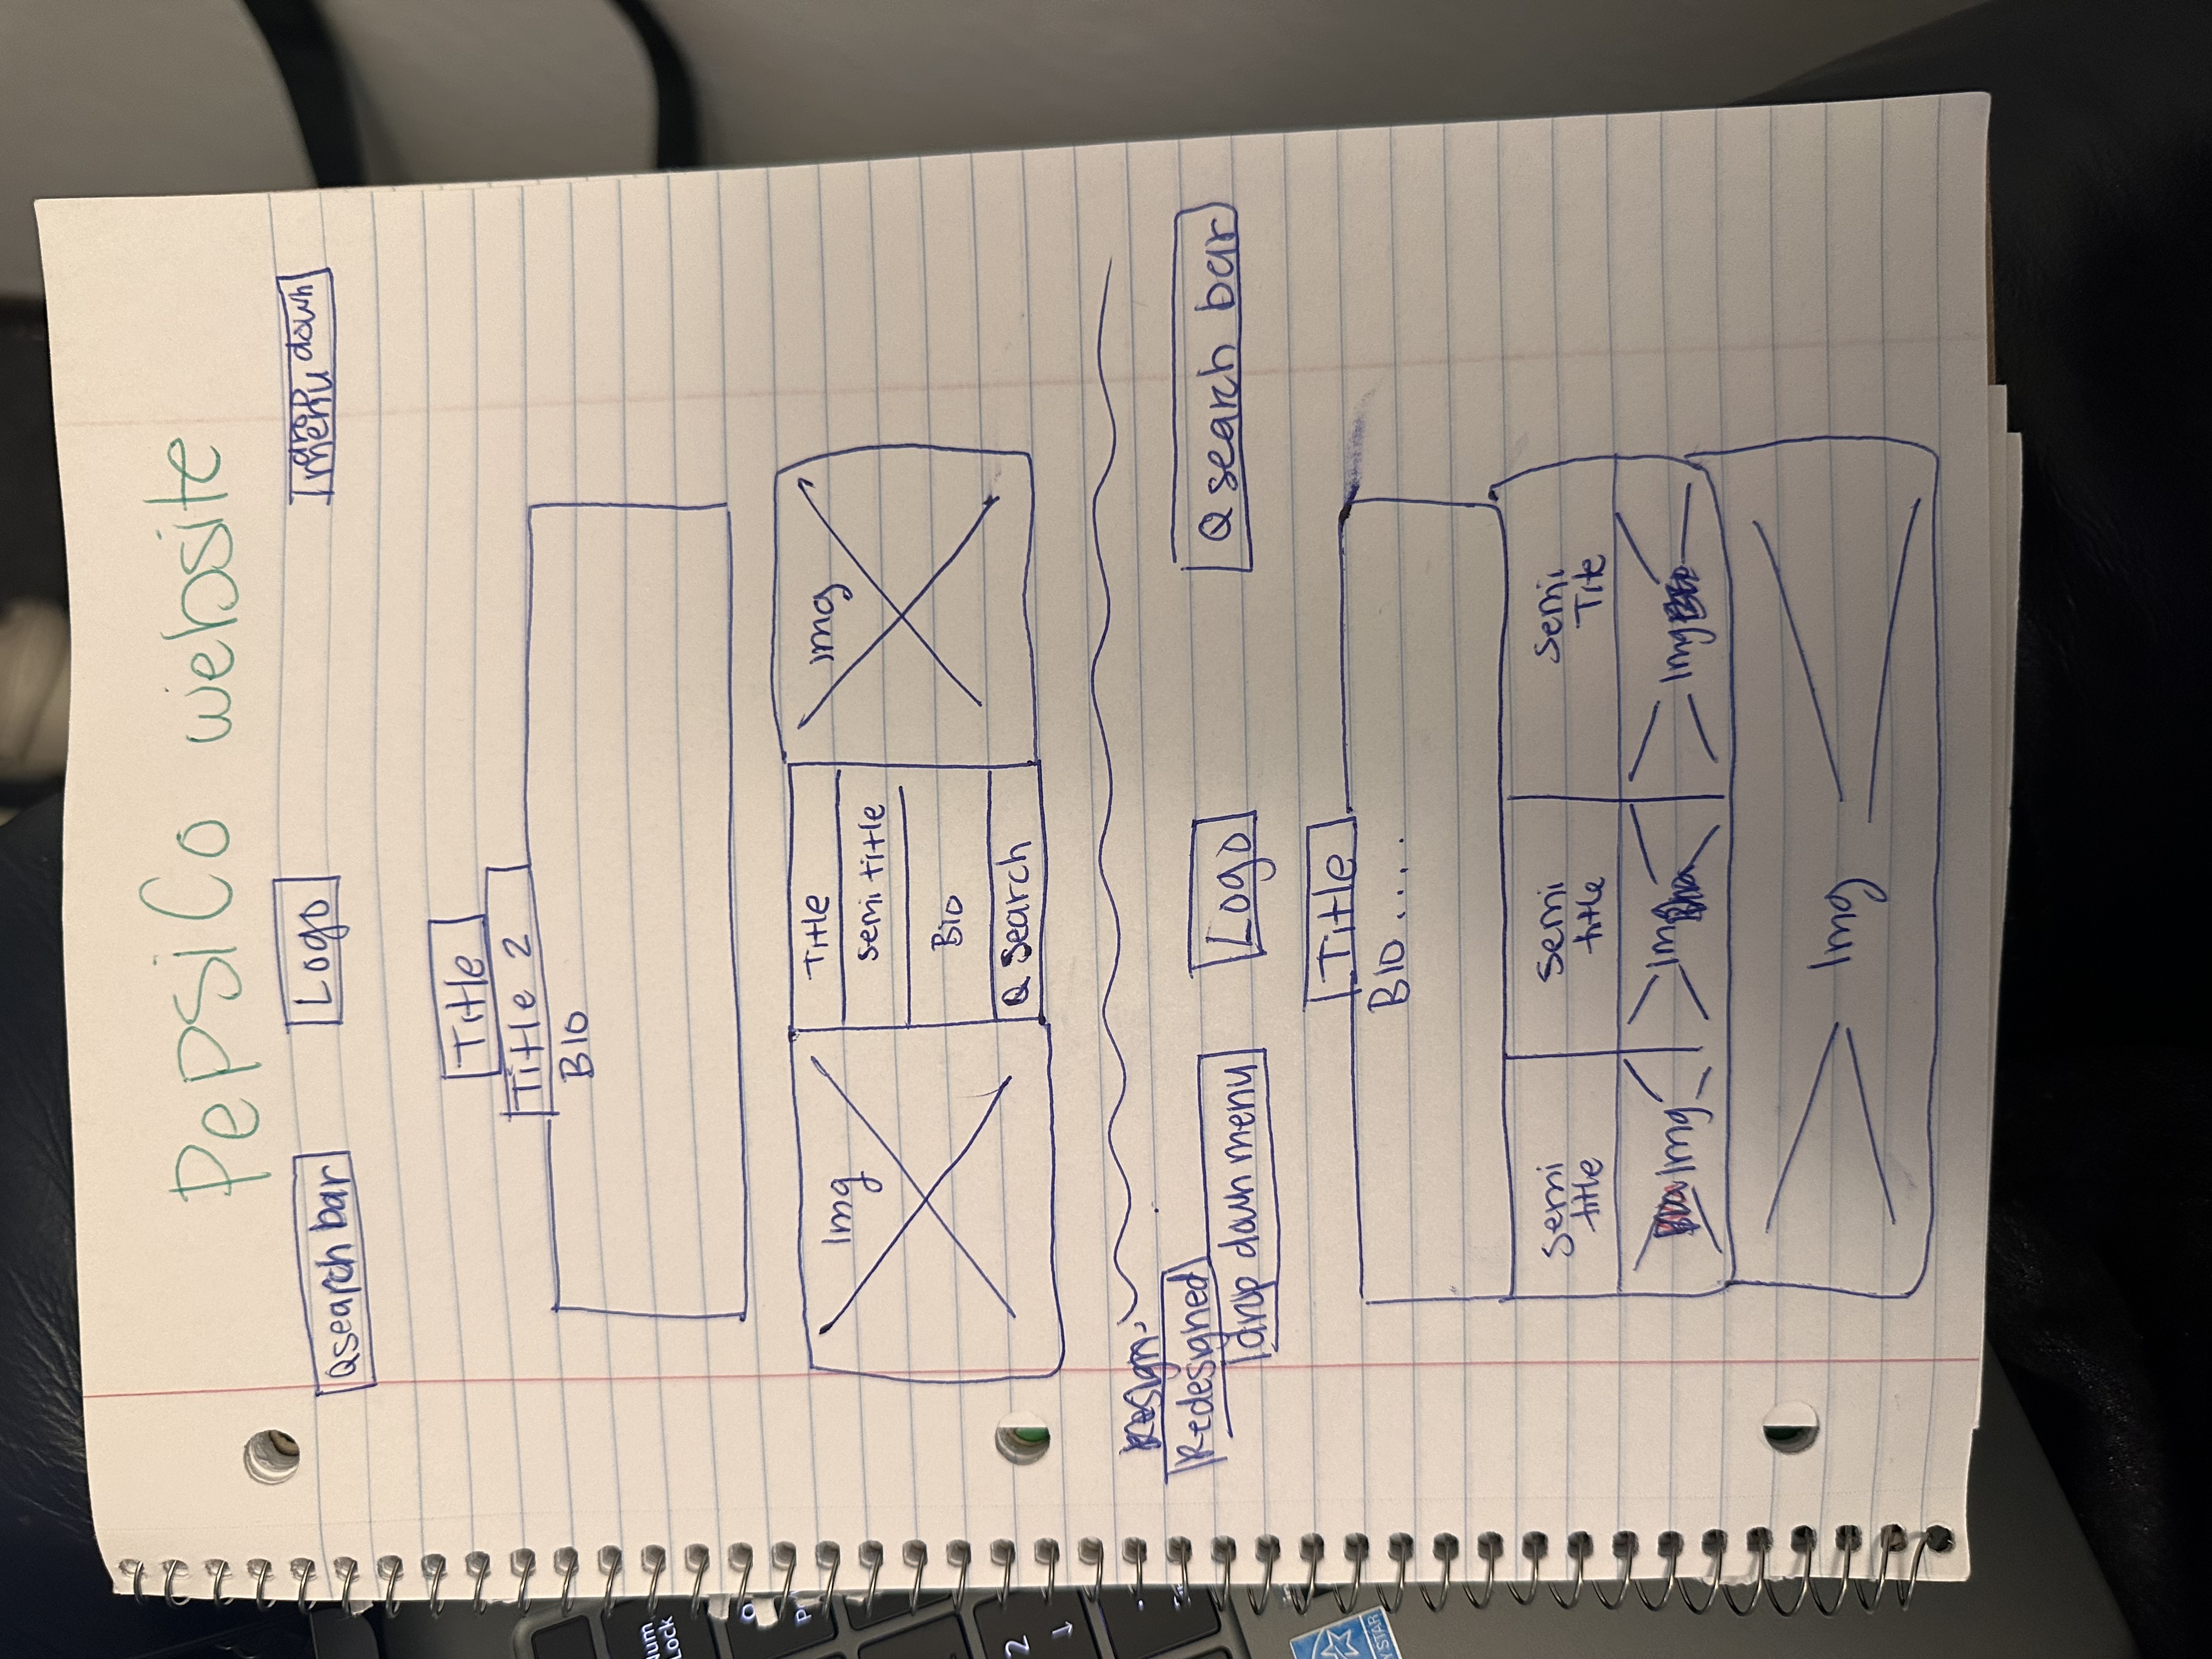 PepsiCo website
Q search bar
Logo
drop down
menu
Title
Title 2
BIO
Img
Title
semi title
Bio
Q Search
img
Resign
Redesigned
drop down menu
Logo
Q search bar
Title
BIO ....
semi
title
semi
title
semi
Tite
Img
Img
Img
Img
Num
Lock
2
↓